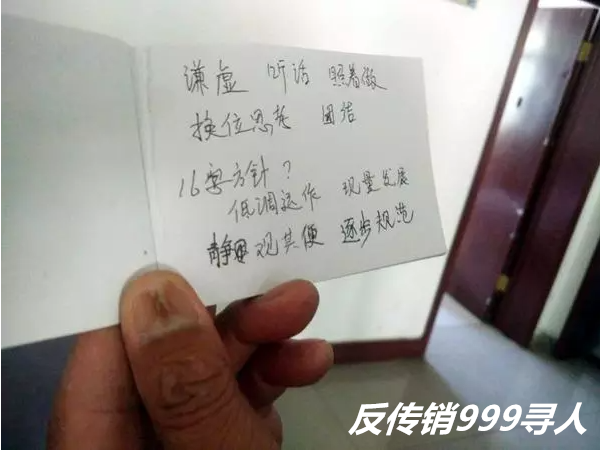 谦虚 听话 照着做
换位思考 团结
16字方针？
低调运作 现量发展
静观其便 逐步规范
反传销999寻人